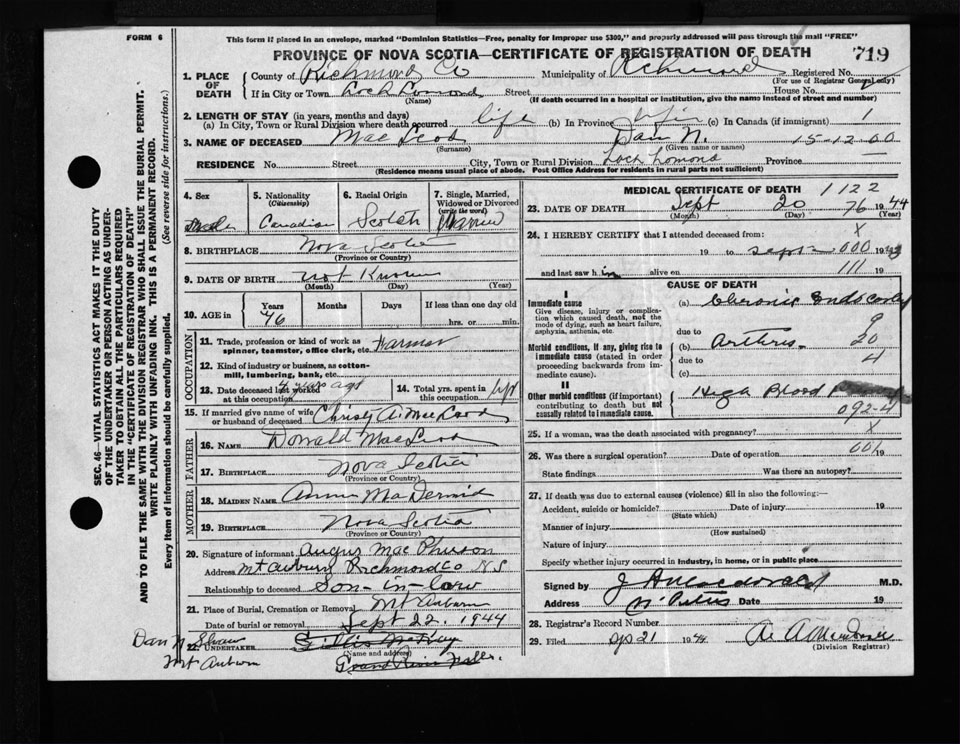 FORM 6
This form if placed in an envelope, marked "Dominion Statistics—Free, penalty for improper use $300," and properly addressed will pass through the mail "FREE"
PROVINCE OF NOVA SCOTIA—CERTIFICATE OF REGISTRATION OF DEATH
719
1. PLACE OF DEATH
County of Richmond Co Municipality of Richmond Registered No.
(For use of Registrar General only)
If in City or Town Loch Lomond Street House No.
(Name) (If death occurred in a hospital or institution, give the name instead of street and number)
2. LENGTH OF STAY (in years, months and days)
(a) In City, Town or Rural Division where death occurred life (b) In Province life (c) In Canada (if immigrant) 1
3. NAME OF DECEASED MacLeod Dan N. 15-12-00
(Surname) (Given name or names)
RESIDENCE No. Street City, Town or Rural Division Loch Lomond Province
(Residence means usual place of abode. Post Office Address for residents in rural parts not sufficient)
SEC. 46—VITAL STATISTICS ACT MAKES IT THE DUTY
OF THE UNDERTAKER OR PERSON ACTING AS UNDER-
TAKER TO OBTAIN ALL THE PARTICULARS REQUIRED
IN THE "CERTIFICATE OF REGISTRATION OF DEATH"
AND TO FILE THE SAME WITH THE DIVISION REGISTRAR WHO SHALL ISSUE THE BURIAL PERMIT.
WRITE PLAINLY WITH UNFADING INK. THIS IS A PERMANENT RECORD.
Every item of information should be carefully supplied. (See reverse side for instructions.)
4. Sex
5. Nationality (Citizenship) Canadian
6. Racial Origin Scotch
7. Single, Married, Widowed or Divorced (write the word) Married
8. BIRTHPLACE Nova Scotia
(Province or Country)
9. DATE OF BIRTH not Known
(Month) (Day) (Year)
10. AGE in Years Months Days If less than one day old
76 hrs. or min.
OCCUPATION
11. Trade, profession or kind of work as spinner, teamster, office clerk, etc. Farmer
12. Kind of industry or business, as cotton-mill, lumbering, bank, etc.
13. Date deceased last worked at this occupation 4 years ago
14. Total yrs. spent in this occupation life
15. If married give name of wife or husband of deceased Christy A. MacLeod
FATHER
16. NAME Donald MacLeod
17. BIRTHPLACE Nova Scotia
(Province or Country)
MOTHER
18. MAIDEN NAME Annie MacDermid
19. BIRTHPLACE Nova Scotia
(Province or Country)
20. Signature of informant Angus MacPherson
Address Mt Auburn Richmond Co N.S
Relationship to deceased Son-in-law
21. Place of Burial, Cremation or Removal Mt Auburn
Date of burial or removal Sept 22, 1944
Dan N. Shaw
Mt Auburn
22. UNDERTAKER Gillis McKay
(Name and address)
Grand River Falls.
MEDICAL CERTIFICATE OF DEATH 1122
23. DATE OF DEATH Sept 20 76 1944
(Month) (Day) (Year)
24. I HEREBY CERTIFY that I attended deceased from: X
19 to Sept 000 19
and last saw him alive on 111 19
CAUSE OF DEATH
I
Immediate cause
Give disease, injury or complication which caused death, not the mode of dying, such as heart failure, asphyxia, asthenia, etc.
(a) Chronic
due to 9
Morbid conditions, if any, giving rise to immediate cause (stated in order proceeding backwards from immediate cause).
(b) 20
due to 4
(c)
II
Other morbid conditions (if important) contributing to death but not causally related to immediate cause.
High Blood
092-4
25. If a woman, was the death associated with pregnancy? X
26. Was there a surgical operation? Date of operation 001 19
State findings Was there an autopsy?
27. If death was due to external causes (violence) fill in also the following:—
Accident, suicide or homicide? Date of injury 19
(State which)
Manner of injury
(How sustained)
Nature of injury
Specify whether injury occurred in Industry, in home, or in public place
Signed by M.D.
Address St Peters Date 19
28. Registrar's Record Number
29. Filed 21 1944
(Division Registrar)